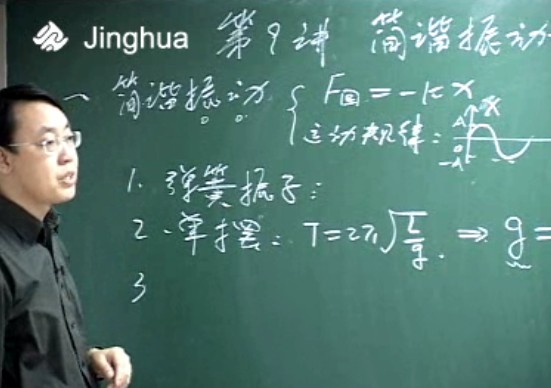 Jinghua
第9讲 简谐振动
一 简谐振动 { F回 = -kx
运动规律: A 0 -A x
1. 弹簧振子:
2. 单摆: T=2π√(L/g) ⇒ g=
3